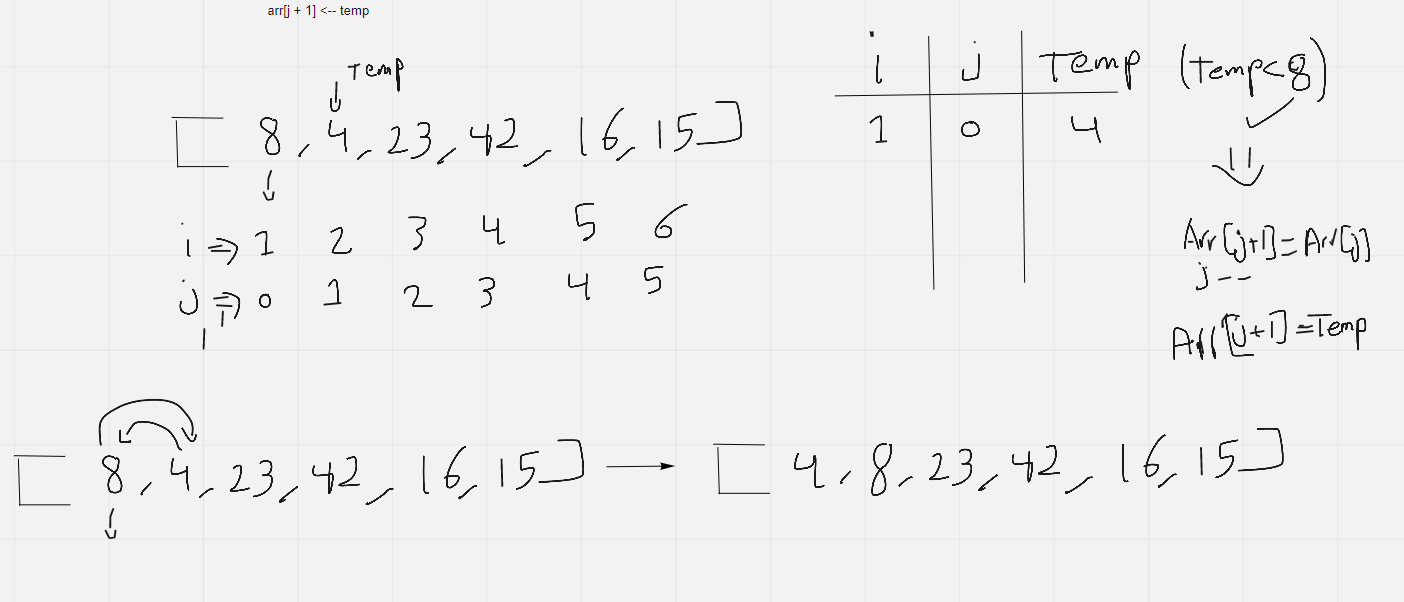 arr[j + 1] <-- temp
Temp
[ 8, 4, 23, 42, 16, 15]
i => 1 2 3 4 5 6
j => 0 1 2 3 4 5
i j Temp (temp<8)
1 0 4
Arr[j+1]=Arr[j]
j--
Arr[j+1]=Temp
[ 8, 4, 23, 42, 16, 15]
[ 4, 8, 23, 42, 16, 15]